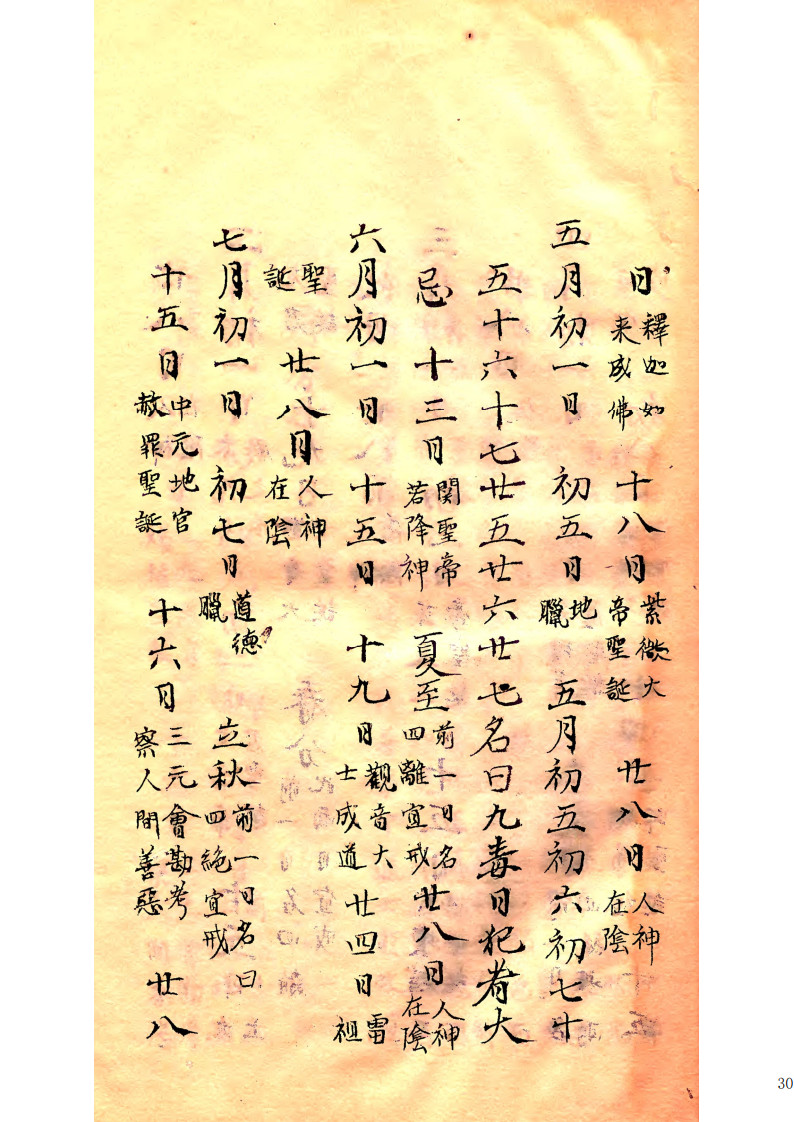 日 釋迦如来成佛 十八日 紫微大帝聖誕 廿八日 人神在陰
五月初一日 初五日 地臘 五月初五初六初七十
五十六十七廿五廿六廿七名曰九毒日犯者大
忌 十三日 関聖帝若降神 夏至 前一日名四離宜戒 廿八日 人神在陰
六月初一日 十五日 十九日 觀音大士成道 廿四日 雷祖
聖誕 廿八日 人神在陰
七月初一日 初七日 道德臘 立秋 前一日名曰四絕宜戒
十五日 中元地官赦罪聖誕 十六日 三元會勘考察人間善惡 廿八
30